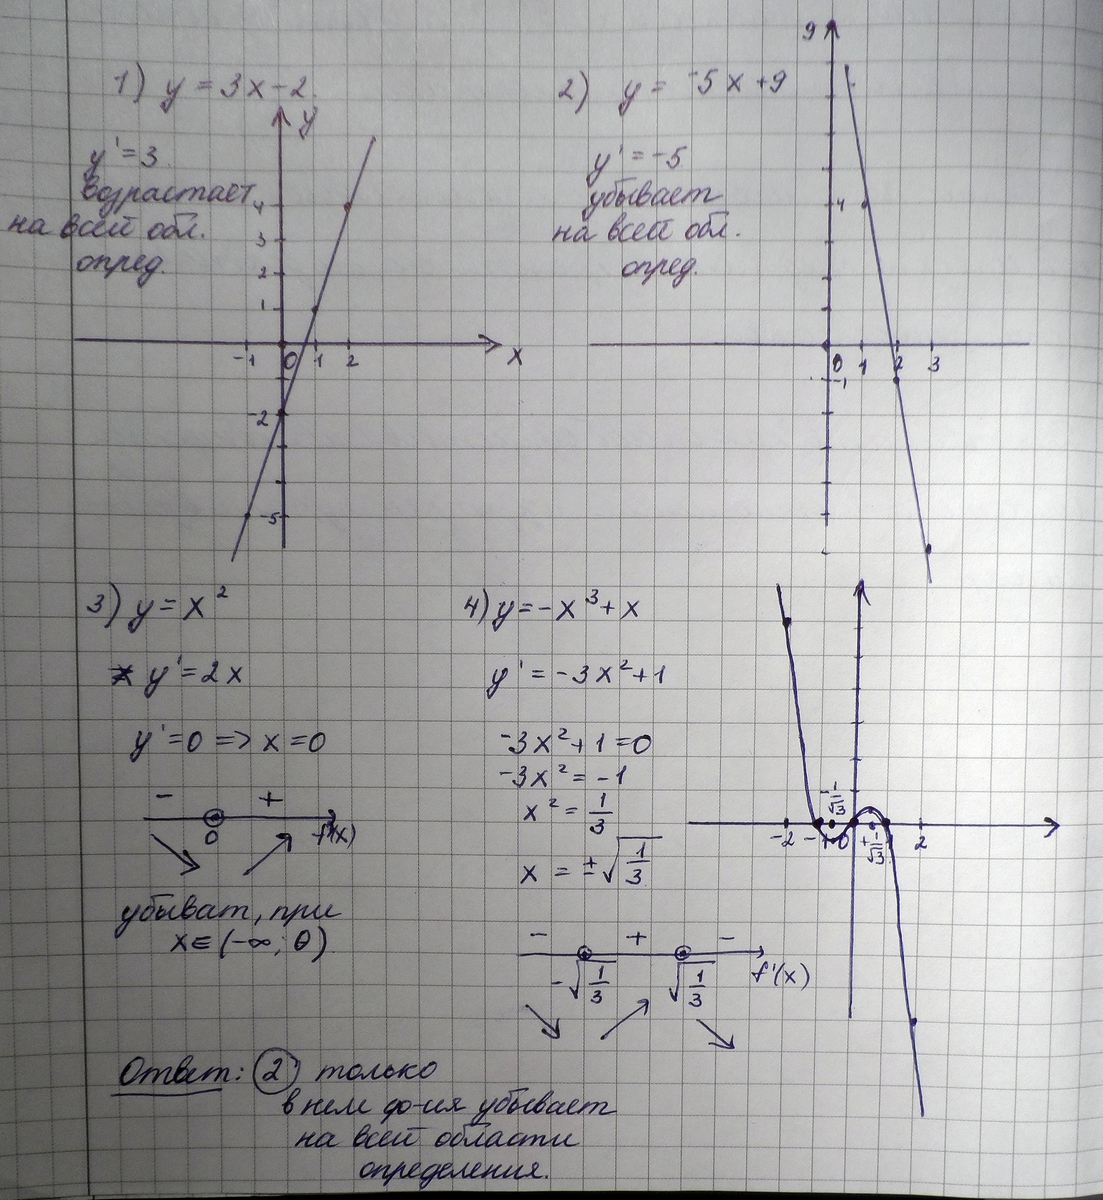 1) y = 3x-2
y
y' = 3
возрастает
на всей обл.
опред.
4
3
2
1
-1 0 1 2 x
-2
-5
2) y = -5x+9
9
y' = -5
убывает
на всей обл.
опред.
4
0 1 2 3
-1
3) y = x²
y' = 2x
y' = 0 => x = 0
- +
0 f'(x)
убыват, при
x ∈ (-∞; 0)
4) y = -x³+x
y' = -3x²+1
-3x²+1=0
-3x² = -1
x² = 1/3
x = ±√(1/3)
- + -
-√(1/3) √(1/3) f'(x)
-1/√3
-2 -1 0 +1/√3 2
Ответ: 2 только
в нем ф-ия убывает
на всей области
определения.